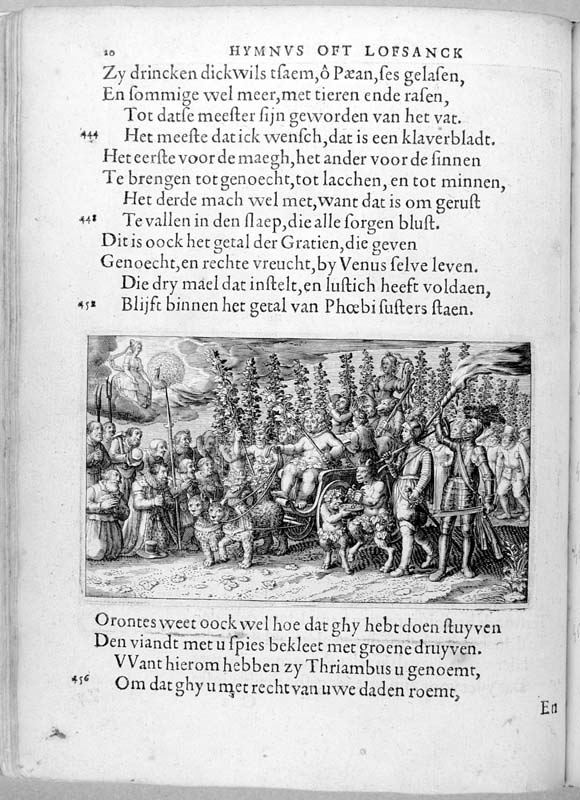 20 HYMNVS OFT LOFSANCK
Zy drincken dickwils tſaem, ô Pæan, ſes gelaſen,
En ſommige wel meer, met tieren ende raſen,
Tot datſe meeſter ſijn geworden van het vat.
444 Het meeſte dat ick wenſch, dat is een klaverbladt.
Het eerſte voor de maegh, het ander voor de ſinnen
Te brengen tot genoecht, tot lacchen, en tot minnen,
Het derde mach wel met, want dat is om geruſt
448 Te vallen in den ſlaep, die alle ſorgen bluſt.
Dit is oock het getal der Gratien, die geven
Genoecht, en rechte vreucht, by Venus ſelve leven.
Die dry mael dat inſtelt, en luſtich heeft voldaen,
452 Blijft binnen het getal van Phœbi ſuſters ſtaen.
Orontes weet oock wel hoe dat ghy hebt doen ſtuyven
Den viandt met u ſpies bekleet met groene druyven.
VVant hierom hebben zy Thriambus u genoemt,
456 Om dat ghy u met recht van uwe daden roemt,
En